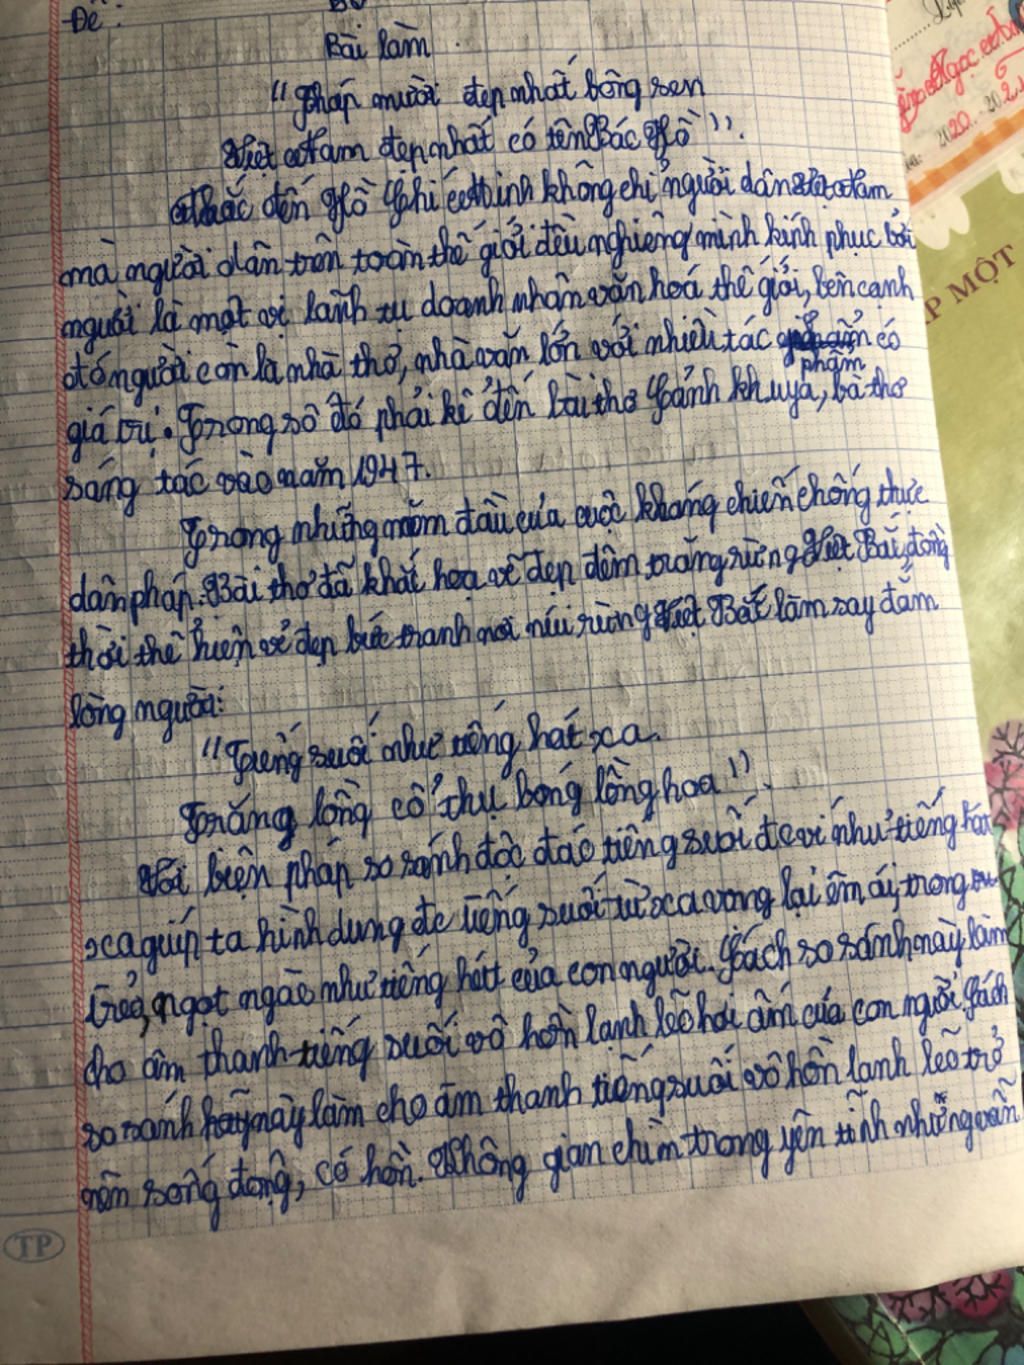 Đề:
Bài làm
"Tháp mười đẹp nhất bông sen
Việt Nam đẹp nhất có tên Bác Hồ".
Nhắc đến Hồ Chí Minh không chỉ người dân Việt Nam
mà người dân trên toàn thế giới đều nghiêng mình kính phục bởi
người là một vị lãnh tụ doanh nhân văn hoá thế giới, bên cạnh
đó người còn là nhà thơ, nhà văn lớn với nhiều tác phẩm có
giá trị. Trong số đó phải kể đến bài thơ Cảnh khuya, bà thơ
sáng tác vào năm 1947.
Trong những năm đầu của cuộc kháng chiến chống thực
dân pháp. Bài thơ đã khắc hoạ vẻ đẹp đêm trăng rừng Việt Bắc, đồng
thời thể hiện vẻ đẹp bức tranh nơi núi rừng Việt Bắc làm say đắm
lòng người:
"Tiếng suối như tiếng hát xa.
Trăng lồng cổ thụ bóng lồng hoa".
Với biện pháp so sánh độc đáo tiếng suối đc ví như tiếng hát
xa giúp ta hình dung đc tiếng suối từ xa vọng lại êm ái, trong
trẻo, ngọt ngào như tiếng hát của con người. Cách so sánh này làm
cho âm thanh tiếng suối vô hồn lạnh lẽo hơi ấm của con người. Cách
so sánh này làm cho âm thanh tiếng suối vô hồn lạnh lẽo trở
nên sống động, có hồn. Không gian chìm trong yên tĩnh nhưng vẫn
TP
2020 - 202
ẬP MỘT